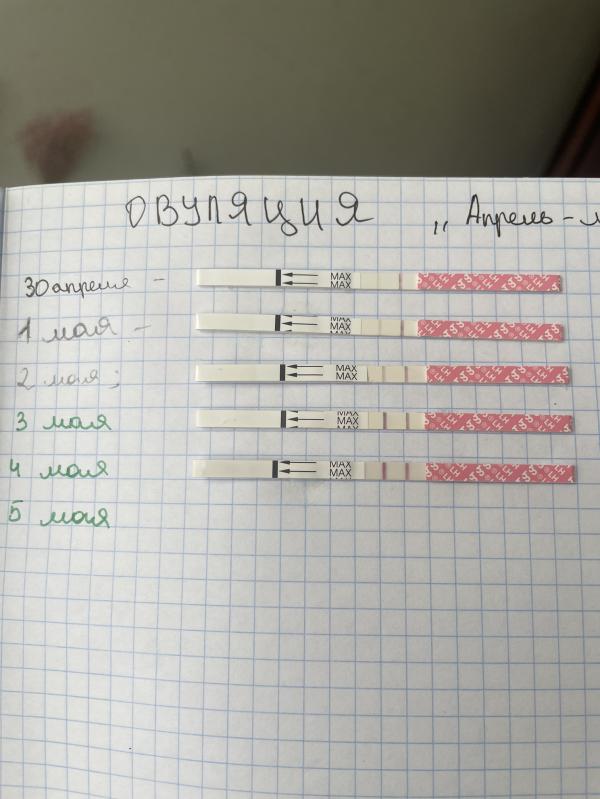 ОВУЛЯЦИЯ „ Апрель - м
30 апреля - MAX MAX
1 мая - MAX MAX
2 мая; MAX MAX
3 мая MAX MAX
4 мая MAX MAX
5 мая